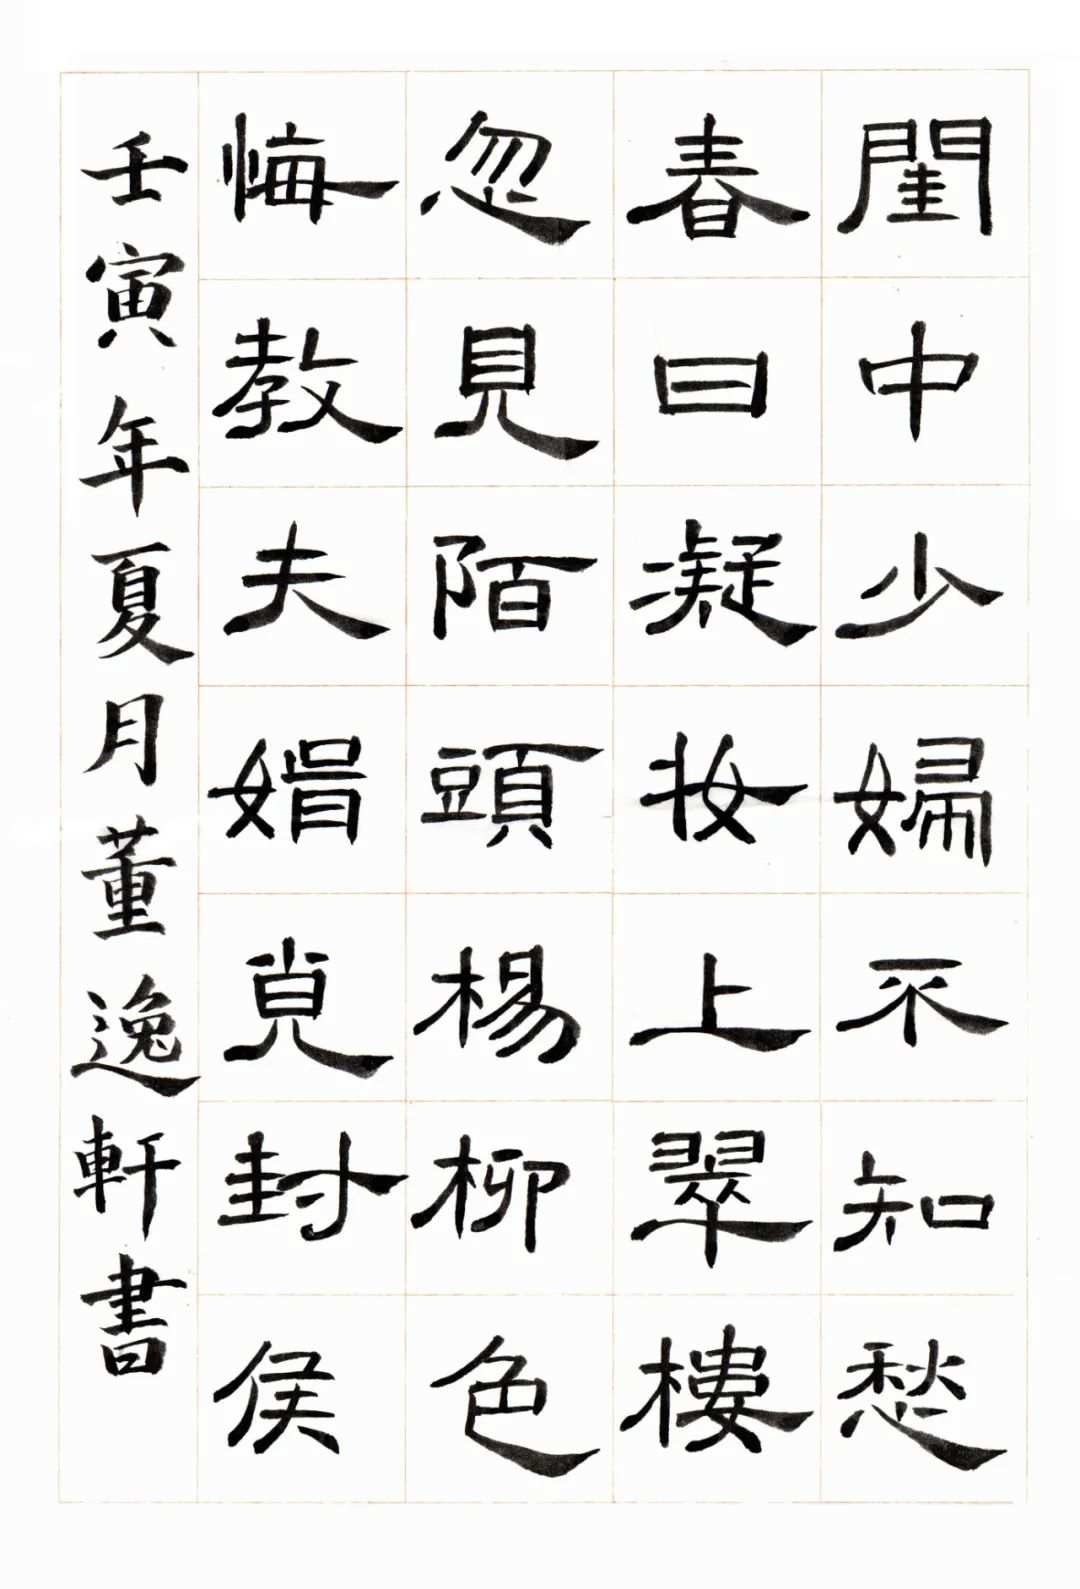 閨中少婦不知愁
春日凝妝上翠樓
忽見陌頭楊柳色
悔教夫婿覓封侯
壬寅年夏月董逸軒書